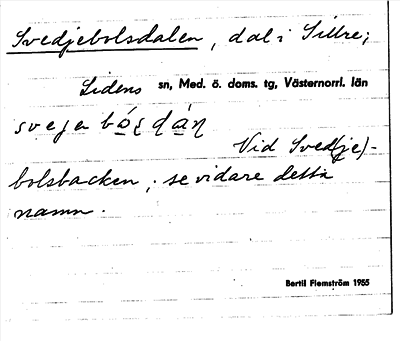 Svedjebolsdalen, dal i Sillre;
Lidens sn, Med. ö. doms. tg, Västernorrl. län
Vid Sved(je)-
bolsbacken; se vidare detta
namn.
Bertil Flemström 1955